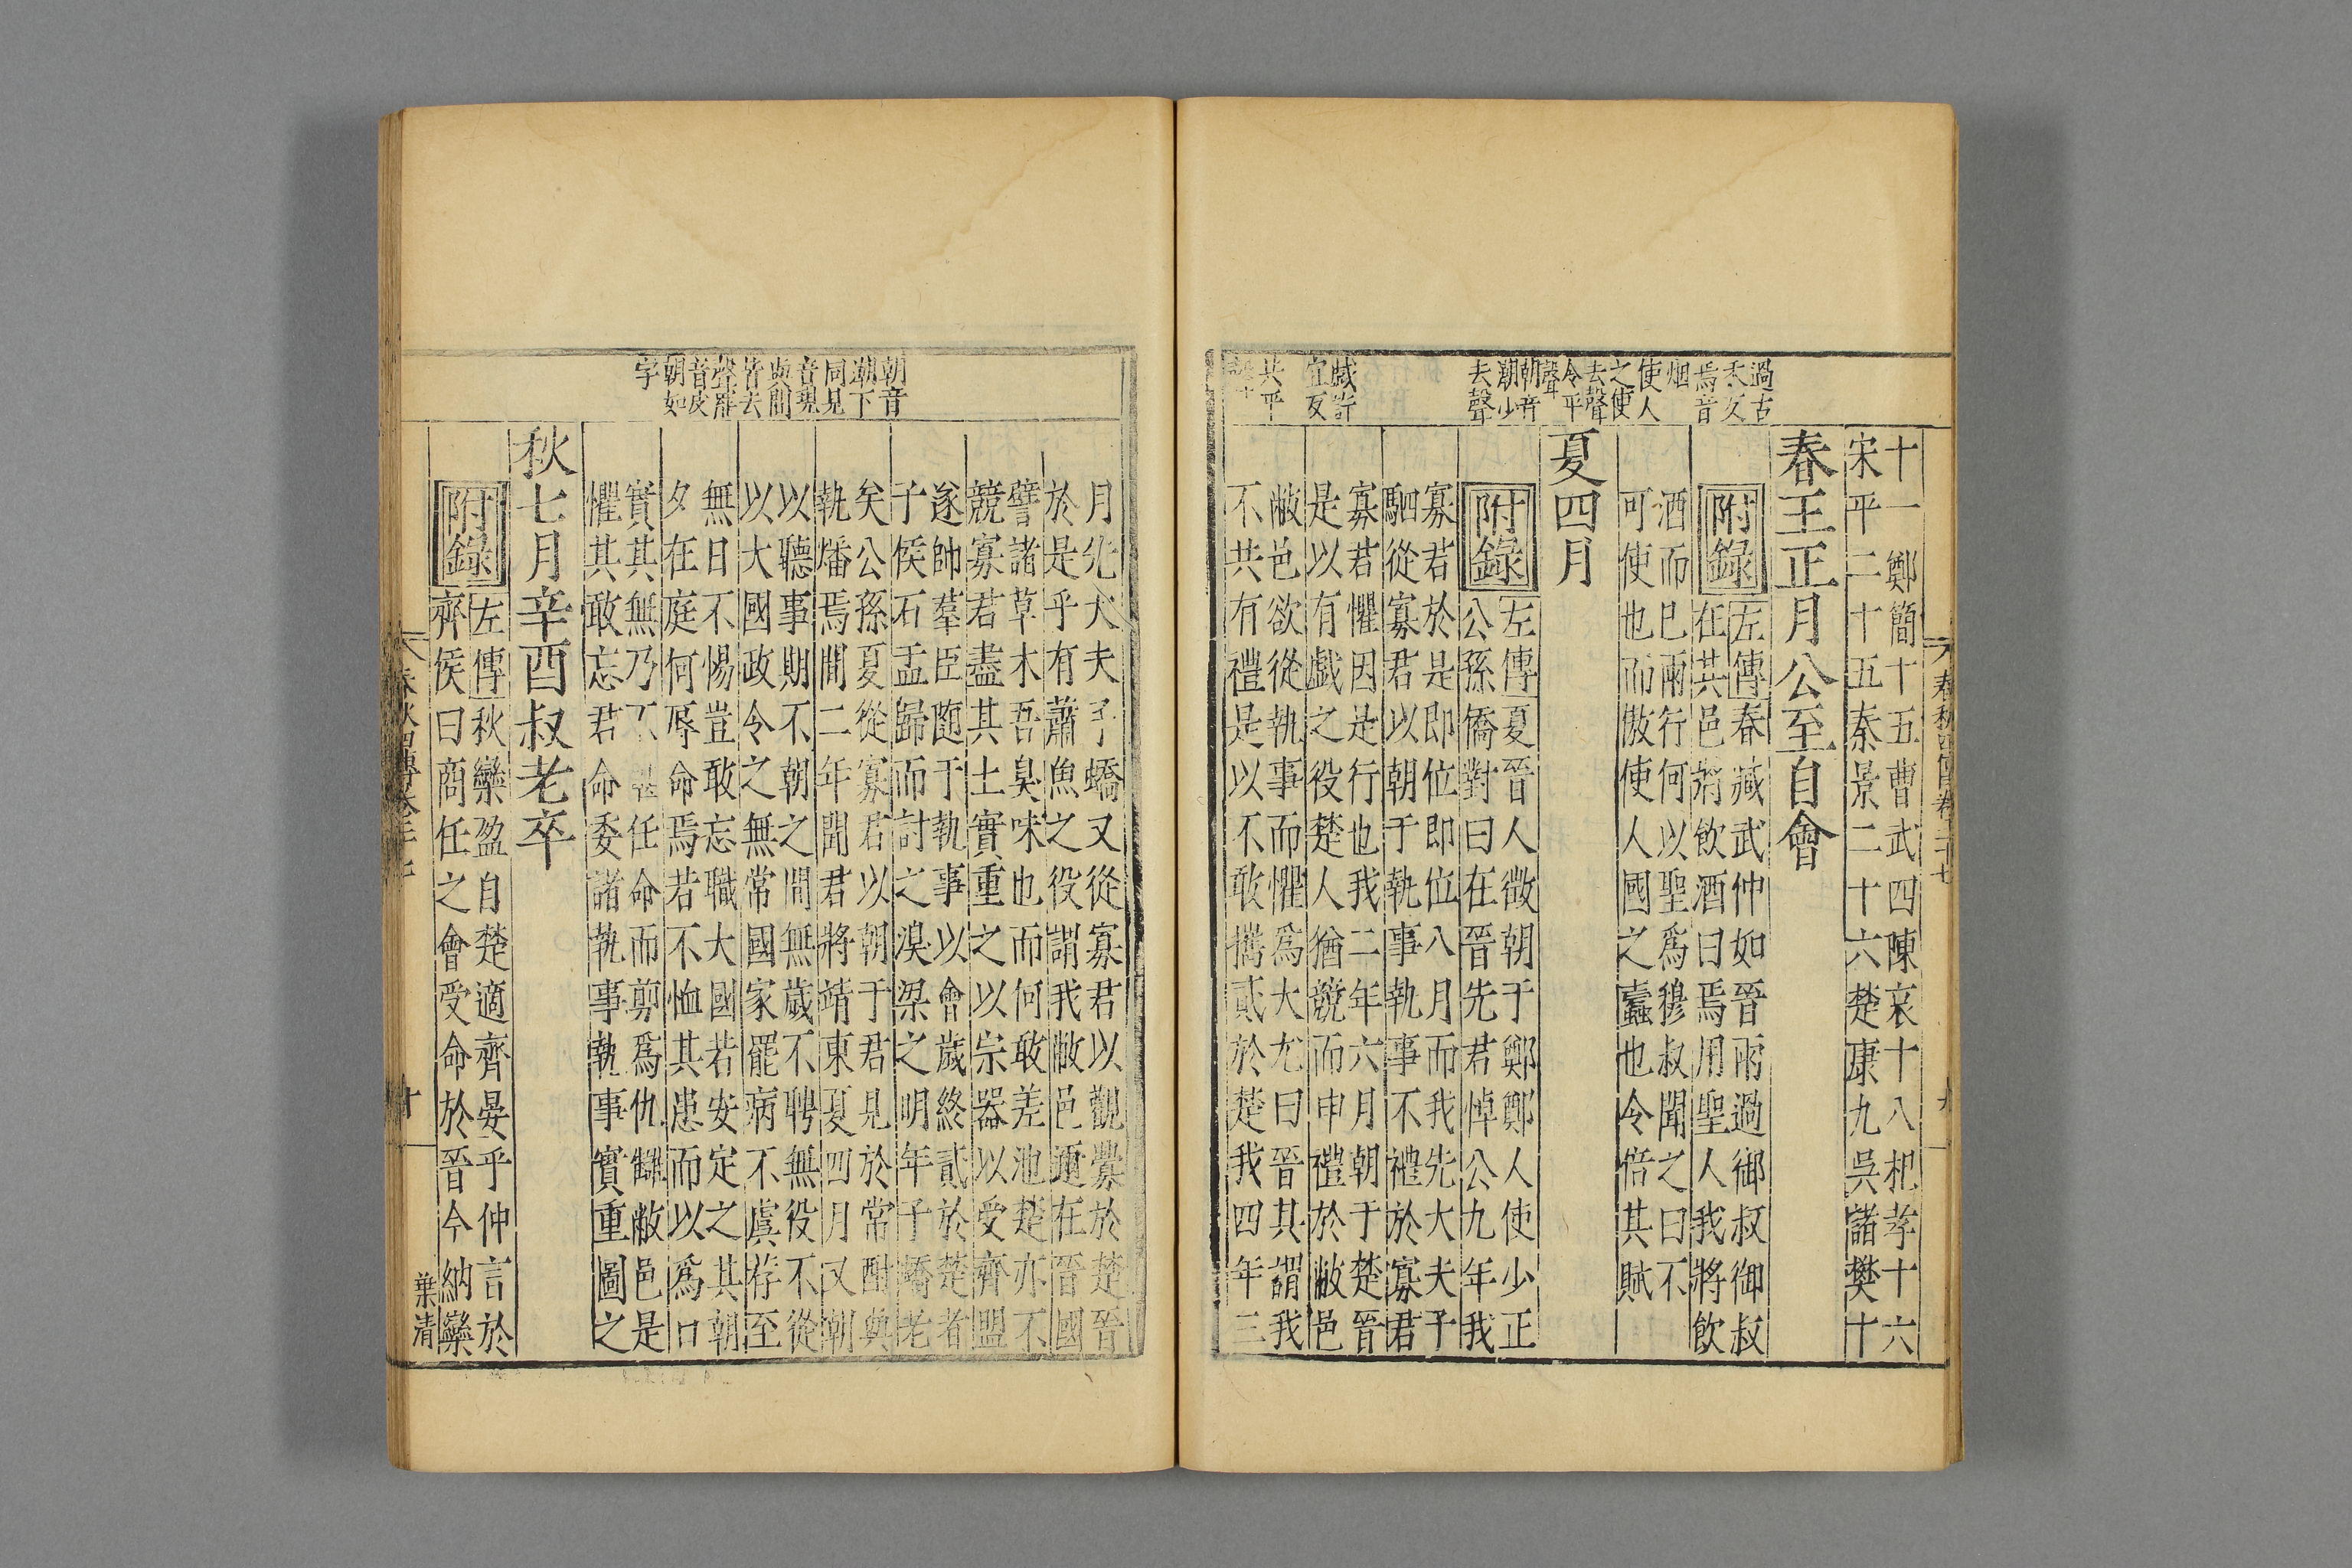 過古
禾反
焉音
烟
使人
之使
去聲
令平
聲
朝音
潮少
去聲
戯許
宜反
共平
十一鄭簡十五曹武四陳哀十八杞孝十六
宋平二十五秦景二十六楚康九吳諸樊十
春王正月公至自會
附錄
左傳春臧武仲如晉雨過御叔御叔
在其邑將飲酒曰焉用聖人我將飲
酒而巳雨行何以聖爲穆叔聞之曰不
可使也而傲使人國之蠧也令倍其賦
夏四月
附錄
左傳夏晉人徵朝于鄭鄭人使少正
公孫僑對曰在晉先君悼公九年我
寡君於是即位即位八月而我先大夫子
駟從寡君以朝于執事執事不禮於寡君
寡君懼因是行也我二年六月朝于楚晉
是以有戯之役楚人猶競而申禮於敝邑
敝邑欲從執事而懼爲大尤曰晉其謂我
不共有禮是以不敢攜貳於楚我四年三
春秋四傳卷二十七
九
朝音
潮下
同見
音現
與間
皆去
聲罷
音皮
朝如
字
月先大夫子蟜又從寡君以觀釁於楚晉
於是乎有蕭魚之役謂我敝邑邇在晉國
譬諸草木吾臭味也而何敢差池楚亦不
競寡君盡其土實重之以宗器以受齊盟
遂帥羣臣隨于執事以會歲終貳於楚者
子侯石盂歸而討之溴梁之明年子蟜老
矣公孫夏從寡君以朝于君見於常酎與
執燔焉間二年聞君將靖東夏四月又朝
以聽事期不朝之間無歲不聘無役不從
以大國政令之無常國家罷病不虞荐至
無日不惕豈敢忘職大國若安定之其朝
夕在庭何辱命焉若不恤其患而以爲口
實其無乃不堪任命而剪爲仇讎敝邑是
懼其敢忘君命委諸執事執事實重圖之
秋七月辛酉叔老卒
附錄
左傳秋欒盈自楚適齊晏平仲言於
齊侯曰商任之會受命於晉今納欒
春秋四傳卷二十七
十
葉清